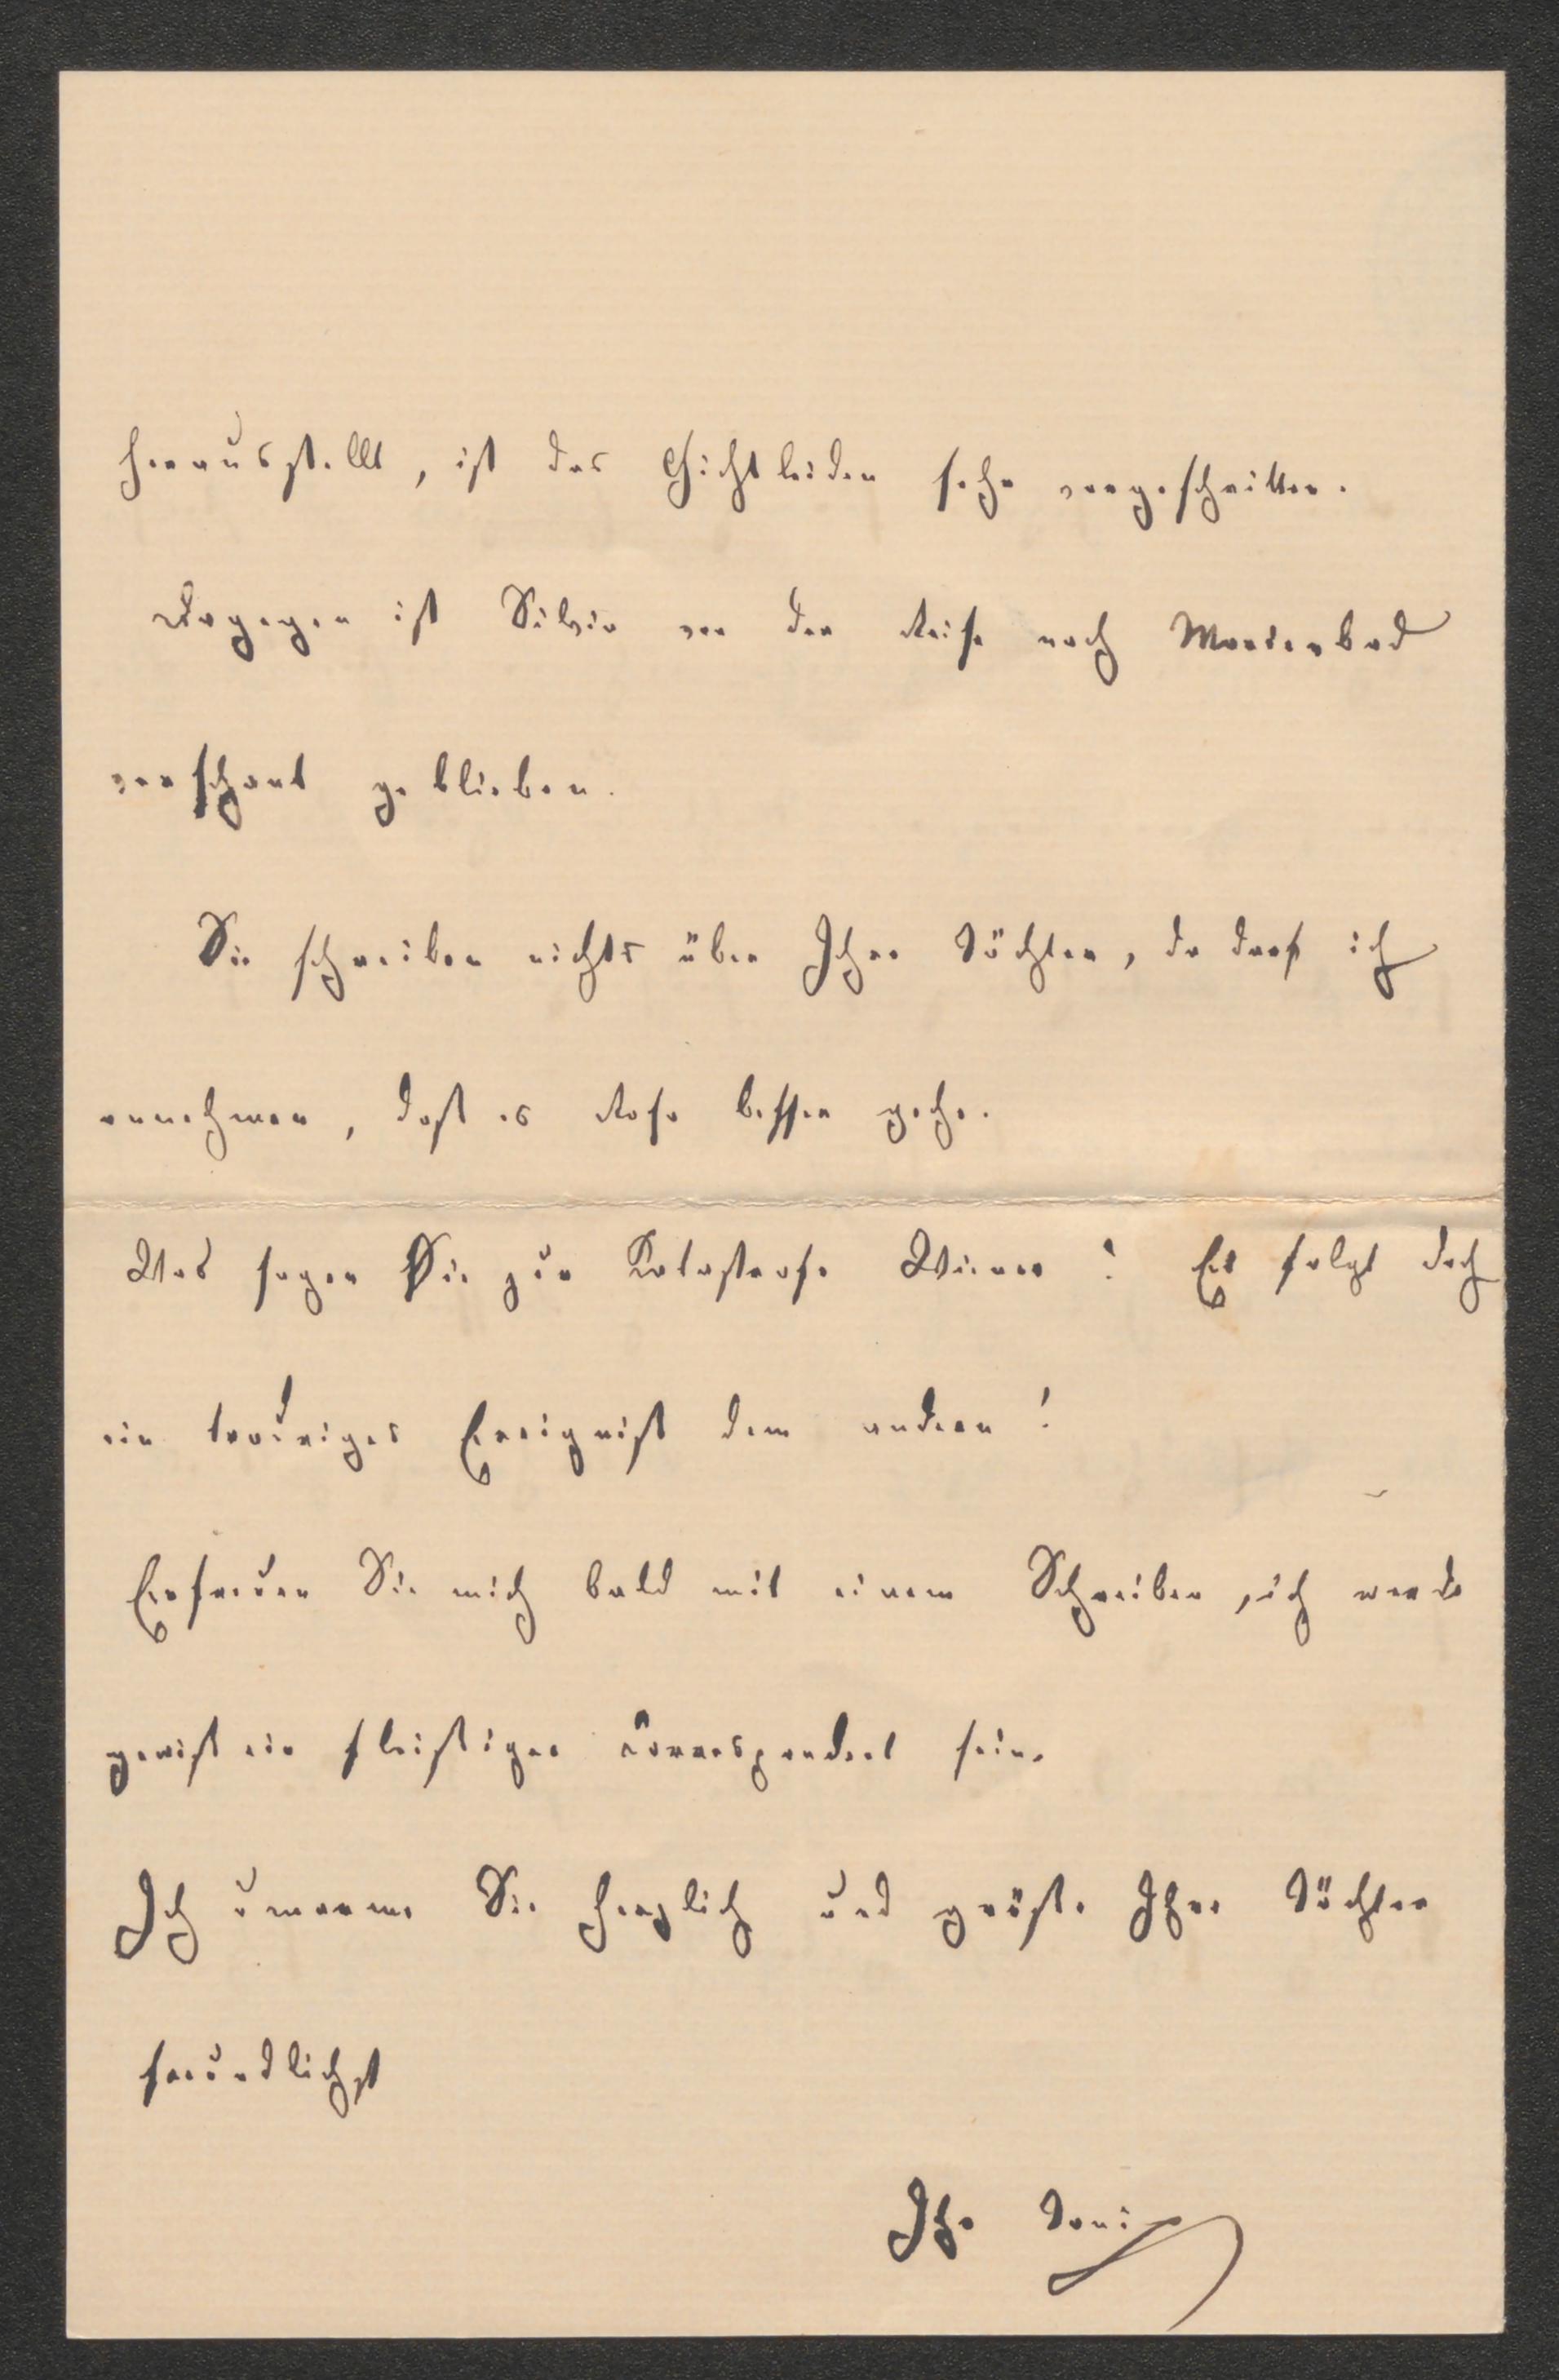 herausstellt, ist das Gichtleiden sehr vorgeschritten.
Dagegen ist Silvia von der Reise nach Marienbad
verschont geblieben.
Sie schreiben nichts über Ihre Töchter, da darf ich
annehmen, daß es Rosa besser gehe.
Was sagen Sie zur Katastrofe Wiener? Es folgt doch
ein trauriges Ereigniß dem andern!
Erfreuen Sie mich bald mit einem Schreiben, ich werde
gewiß ein fleißiger Correspondent sein.
Ich umarme Sie herzlich und grüße Ihre Töchter
freundlichst
Ihr Toni